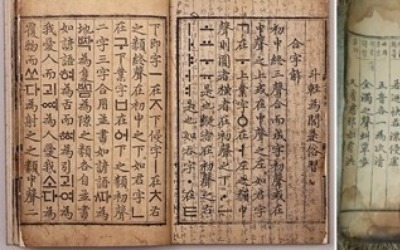 斗輕為閭巷俗習
合字解
初中終三聲合而成字初聲或在
中聲之上或在中聲之左如君字ㄱ
在ㅜ上業字ㆁ在ㅓ左之類中
聲則圓者橫者在初聲之下ㆍㅡ
ㅗㅛㅜㅠ是也縱者在初聲之右
ㅣㅏㅑㅓㅕ是也如呑字ㆍ在ㅌ
下即字ㅡ在ㅈ下侵字ㅣ在ㅊ右
之類終聲在初中之下如君字ㄴ
在구下業字ㅂ在어下之類初聲
二字三字合用並書如諺語ᄯᅡ為
地ᄧᅡᆨ為隻ᄢᅳᆷ為隙之類各自並書
如諺語혀為舌而ᅘᅧ為引괴여為
我愛人而괴ᅇᅧ為人愛我소다為
覆物而쏘다為射之之類中聲二